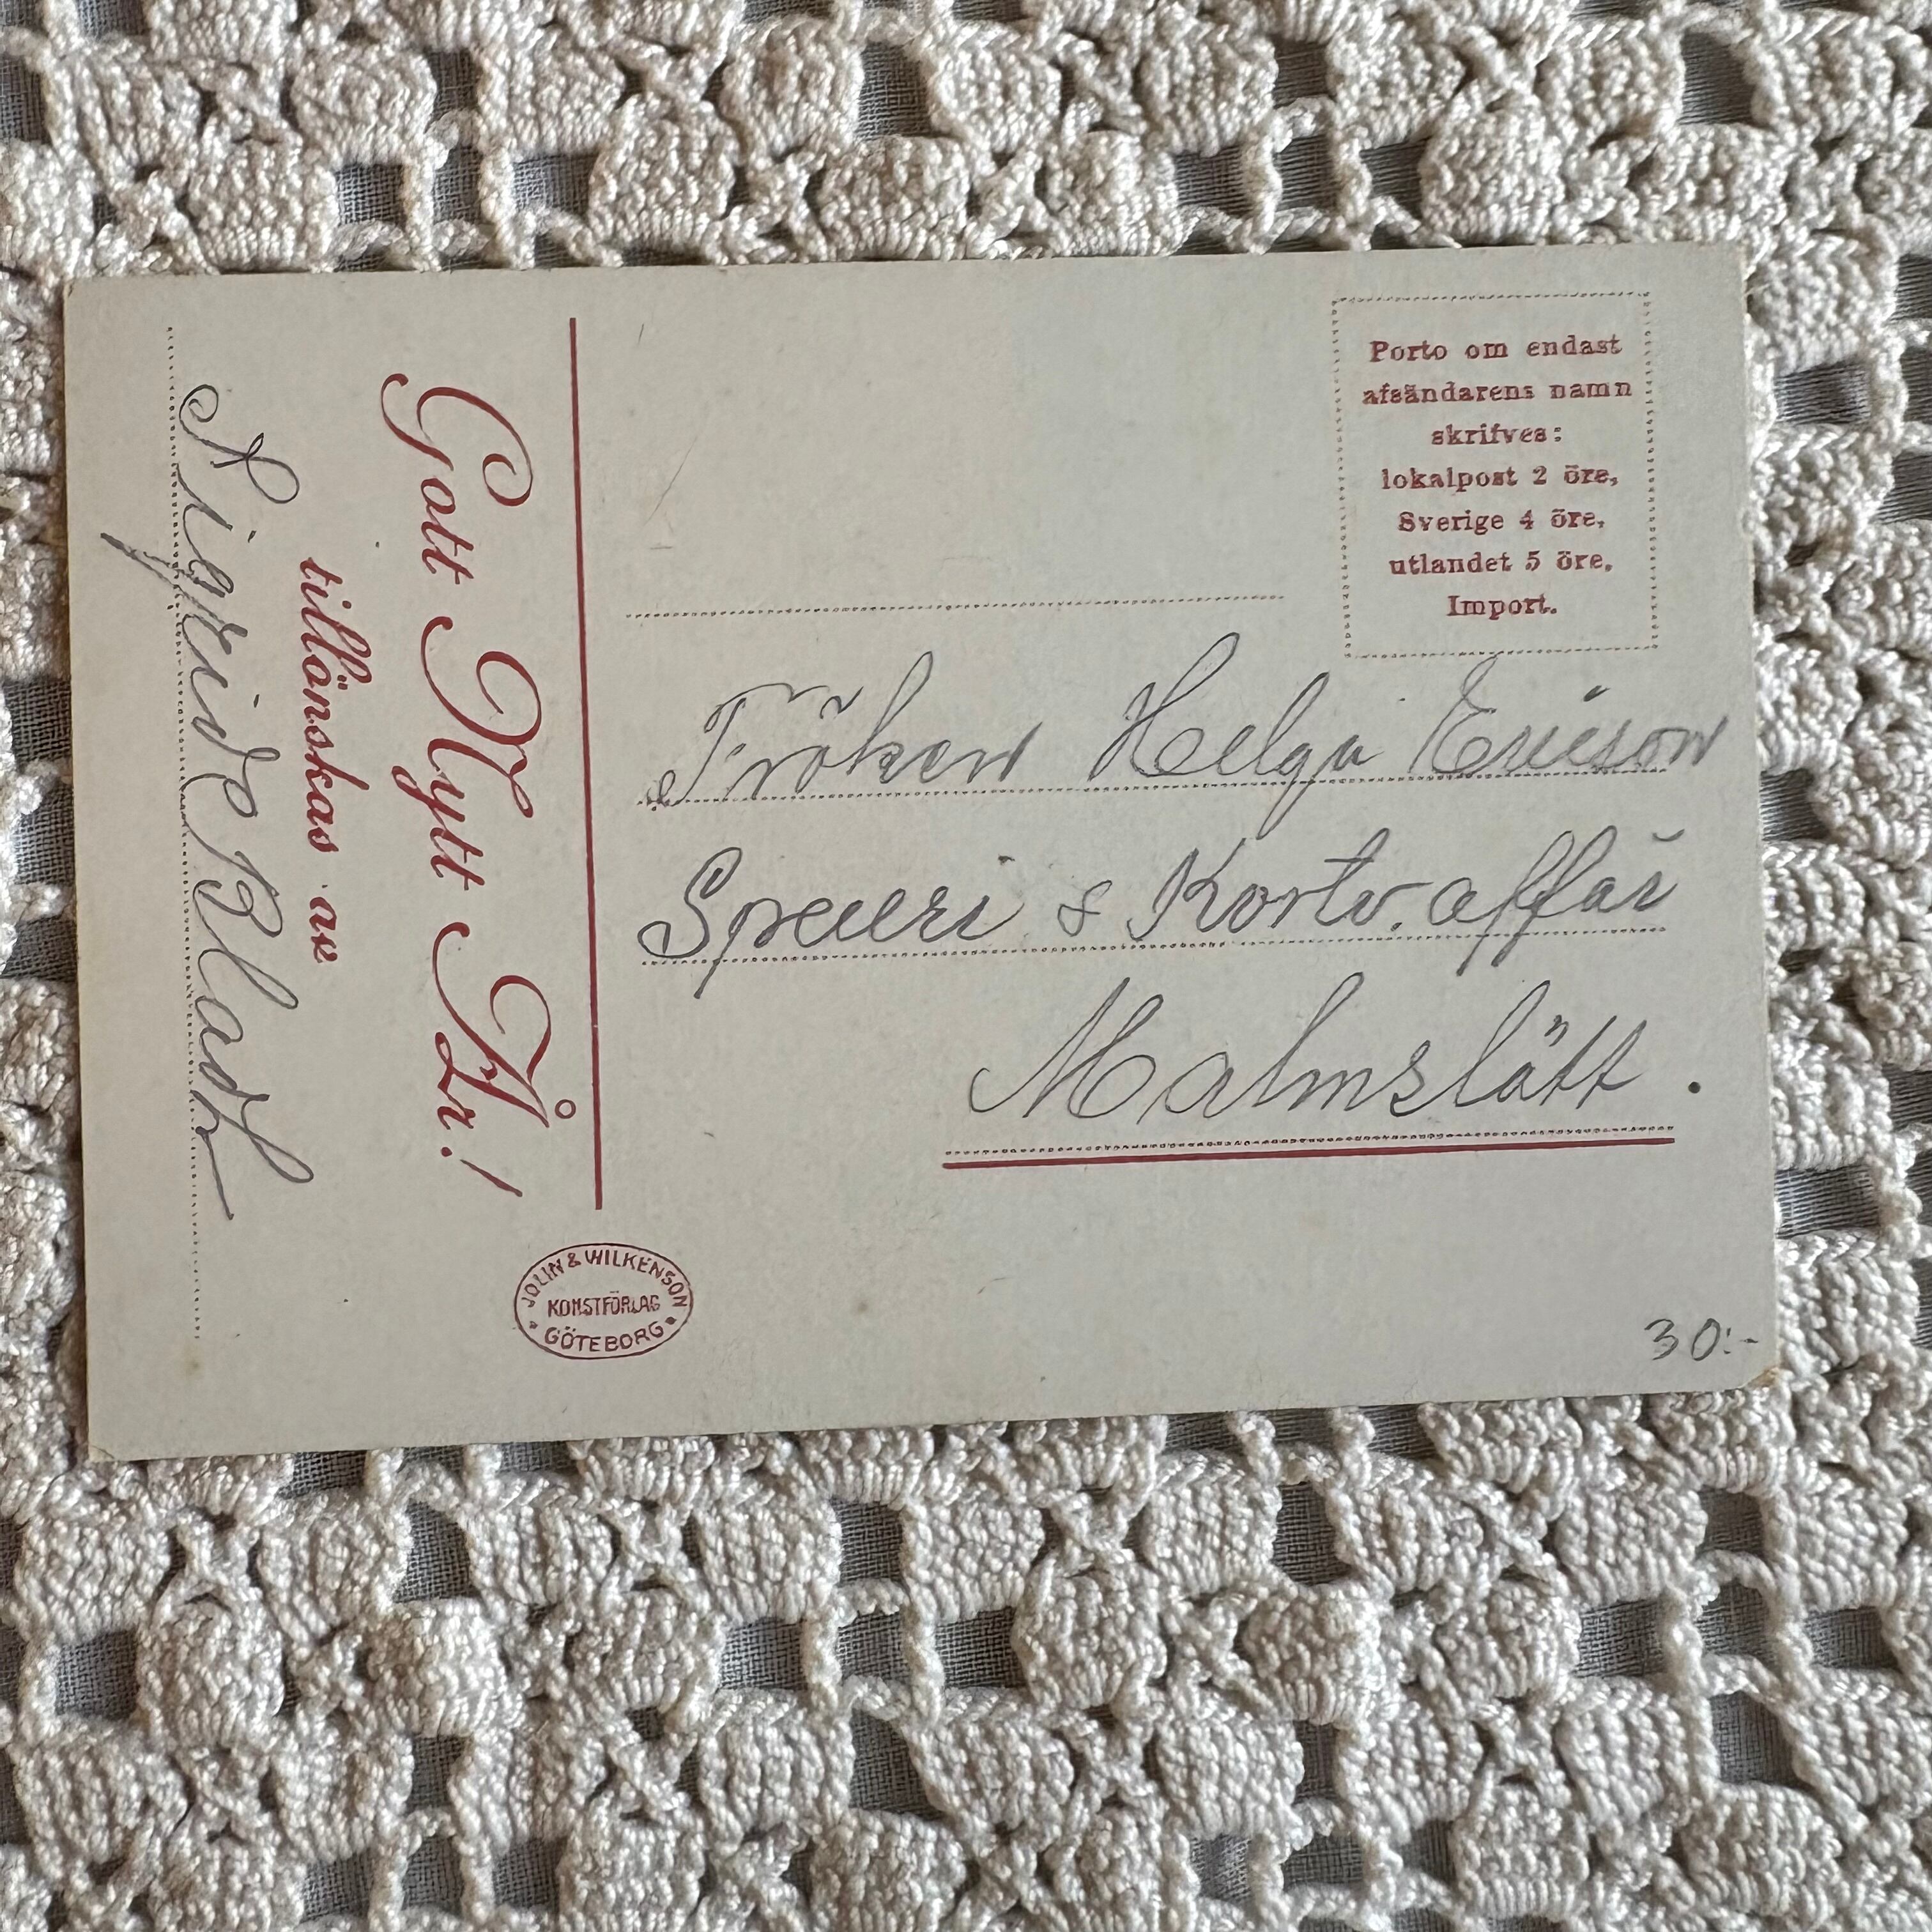 Gott Nytt År!
tillönskas av
Sigrid Bladh
Porto om endast
afsändarens namn
skrifves:
lokalpost 2 öre,
Sverige 4 öre,
utlandet 5 öre.
Import.
Fröken Helga Ericson
& Kortv. affär
Malmslätt.
JOLIN & WILKENSON
KONSTFÖRLAG
GÖTEBORG
30:-